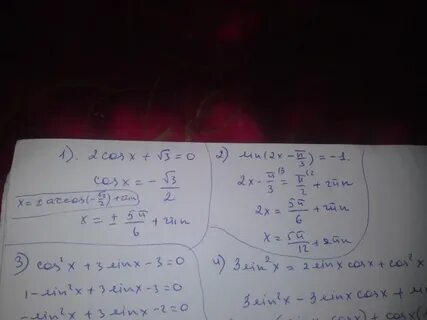 1). 2cosx + √3 = 0
cosx = - √3/2
x = ± arccos(-√3/2) + 2πn
x = ± 5π/6 + 2πn
2) sin(2x - π/3) = -1.
2x - π/3 = π/2 + 2πn
2x = 5π/6 + 2πn
x = 5π/12 + 2πn
3) cos²x + 3sinx - 3 = 0
1 - sin²x + 3sinx - 3 = 0
- sin²x + 3sinx - 2 = 0
4) 3sin²x = 2sinxcosx + cos²x
3sin²x - 3sinxcosx +